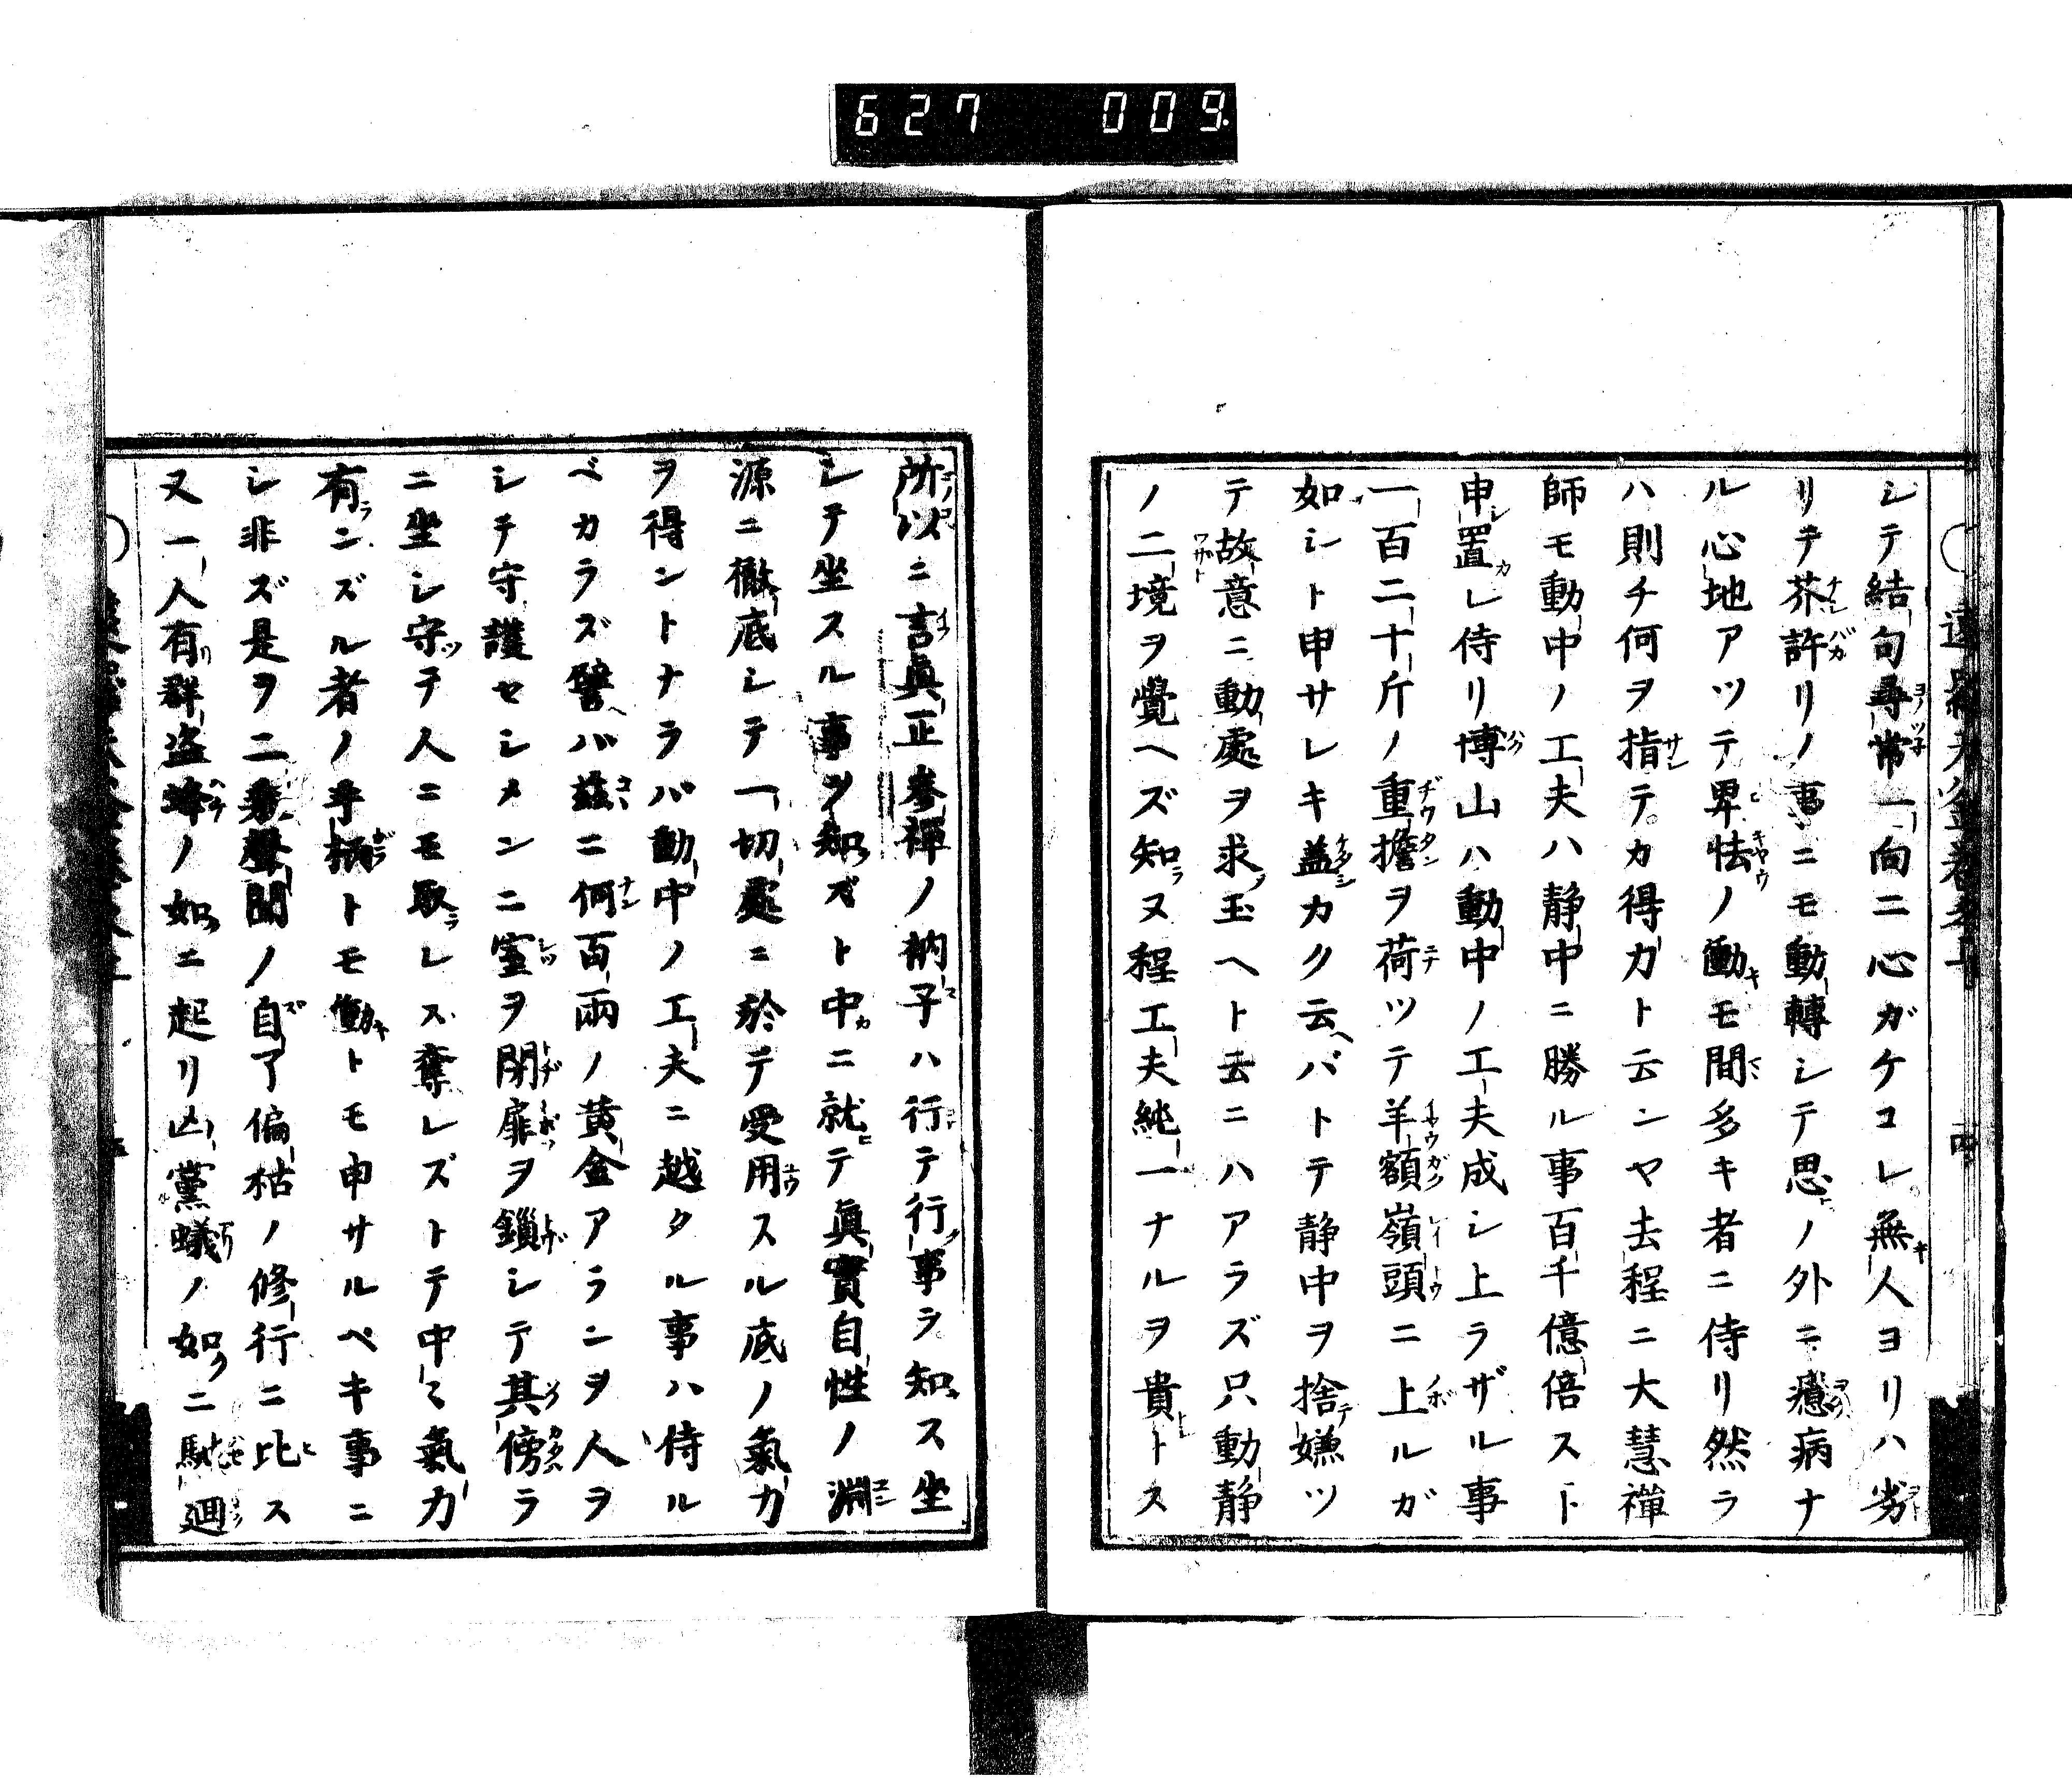 627 009
シテ結句尋常一向ニ心ガケコレ無人ヨリハ劣
リテ芥許リノ事ニモ動轉シテ思ノ外ニ癋病ナ
ル心地アツテ卑怯ノ働モ間多キ者ニ侍リ然ラ
ハ則チ何ヲ指テカ得力ト云ンヤ去程ニ大慧禪
師モ動中ノ工夫ハ静中ニ勝ル事百千億倍スト
申置レ侍リ博山ハ動中ノ工夫成シ上ラザル事
一百二十斤ノ重擔ヲ荷ツテ羊額嶺頭ニ上ルガ
如シト申サレキ蓋カク云バトテ静中ヲ捨嫌ツ
テ故意ニ動處ヲ求玉ヘト云ニハアラズ只動静
ノ二境ヲ覺ヘズ知ヌ程工夫純一ナルヲ貴トス
所以ニ言眞正參禪ノ衲子ハ行テ行事ラ知ス坐
シテ坐スル事ヲ知ズト中ニ就テ眞實自性ノ淵
源ニ徹底シテ一切處ニ於テ受用スル底ノ氣力
ヲ得ントナラバ動中ノ工夫ニ越タル事ハ侍ル
ベカラズ譬バ茲ニ何百兩ノ黄金アランヲ人ヲ
シチ守護セシメンニ室ヲ閉扉ヲ鎖シテ其傍ラ
ニ坐シ守テ人ニモ取レス奪レズトテ中〻氣力
有ンズル者ノ手柄トモ働トモ申サルペキ事ニ
シ非ズ是ヲ二乘聲聞ノ自了偏枯ノ修行ニ比ス
又一人有群盜蜂ノ如ニ起リ凶黨蟻ノ如クニ馳廻